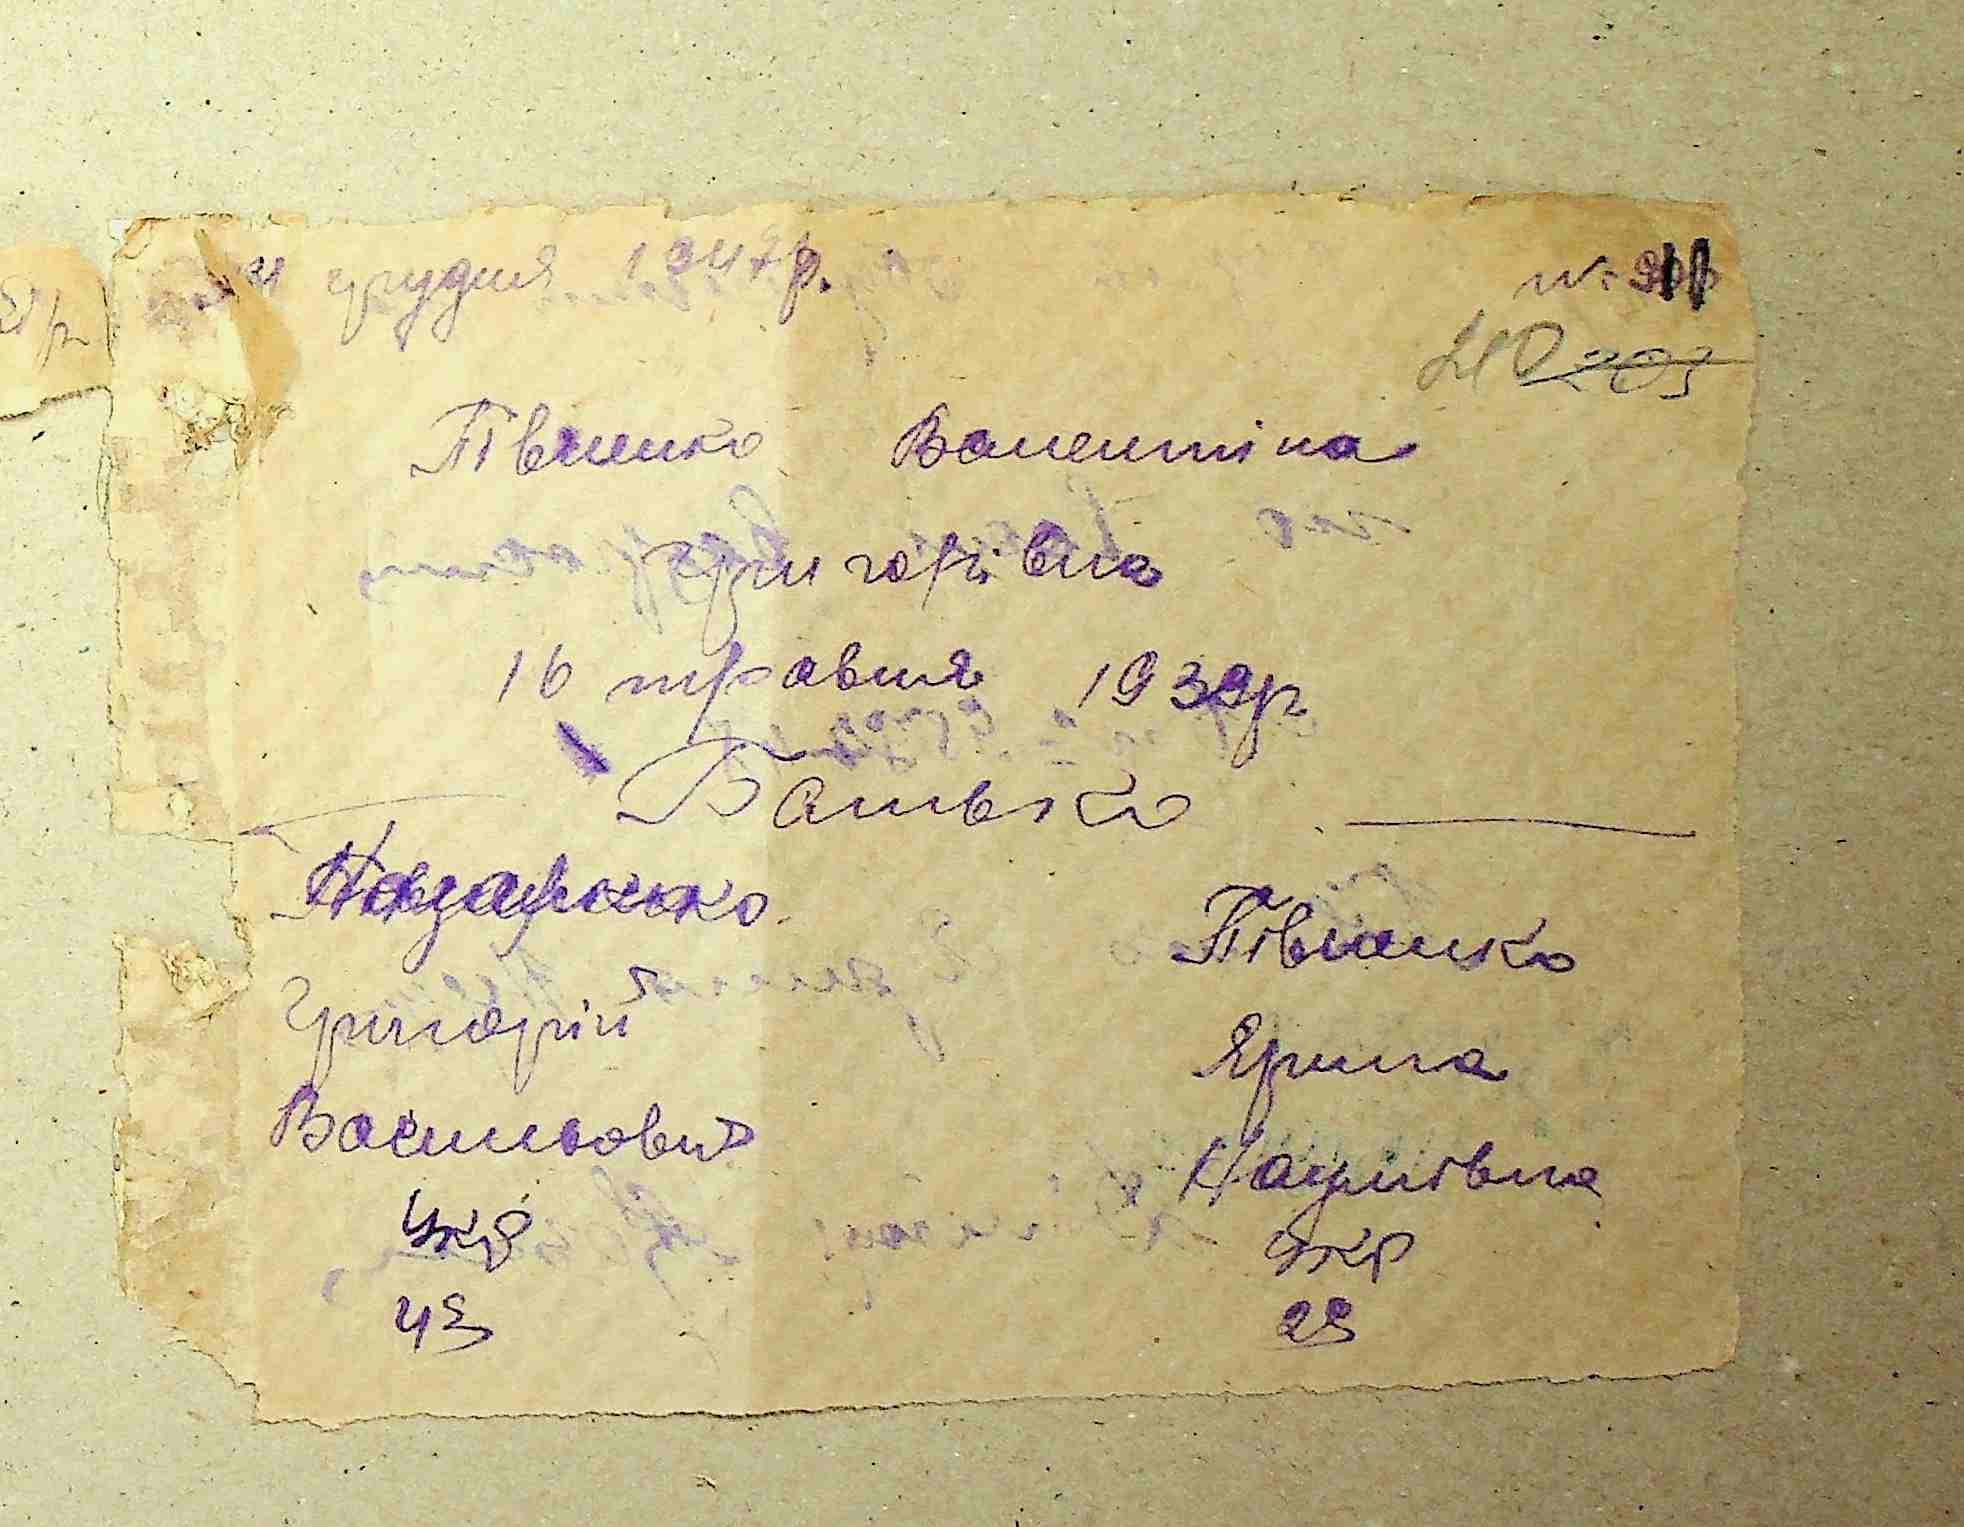 грудня 1947р.
№
210 203
Півненко Валентіна
Григорівна
16 травня 1939р
Батько
Назаренко
Григорій
Васильович
Укр
43
Півненко
Ярина
Наумівна
Укр
29